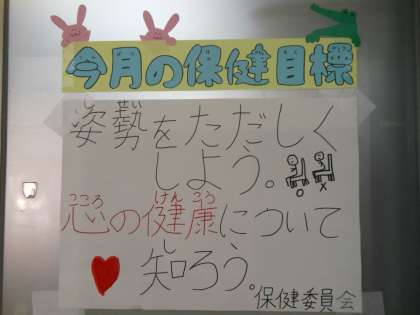 今月の保健目標
姿勢をただしく
しよう。
心の健康について
知ろう。
保健委員会